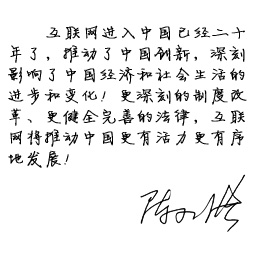 互联网进入中国已经二十
年了，推动了中国创新，深刻
影响了中国经济和社会生活的
进步和变化！更深刻的制度改
革、更健全完善的法律，互联
网将推动中国更有活力更有序
地发展！